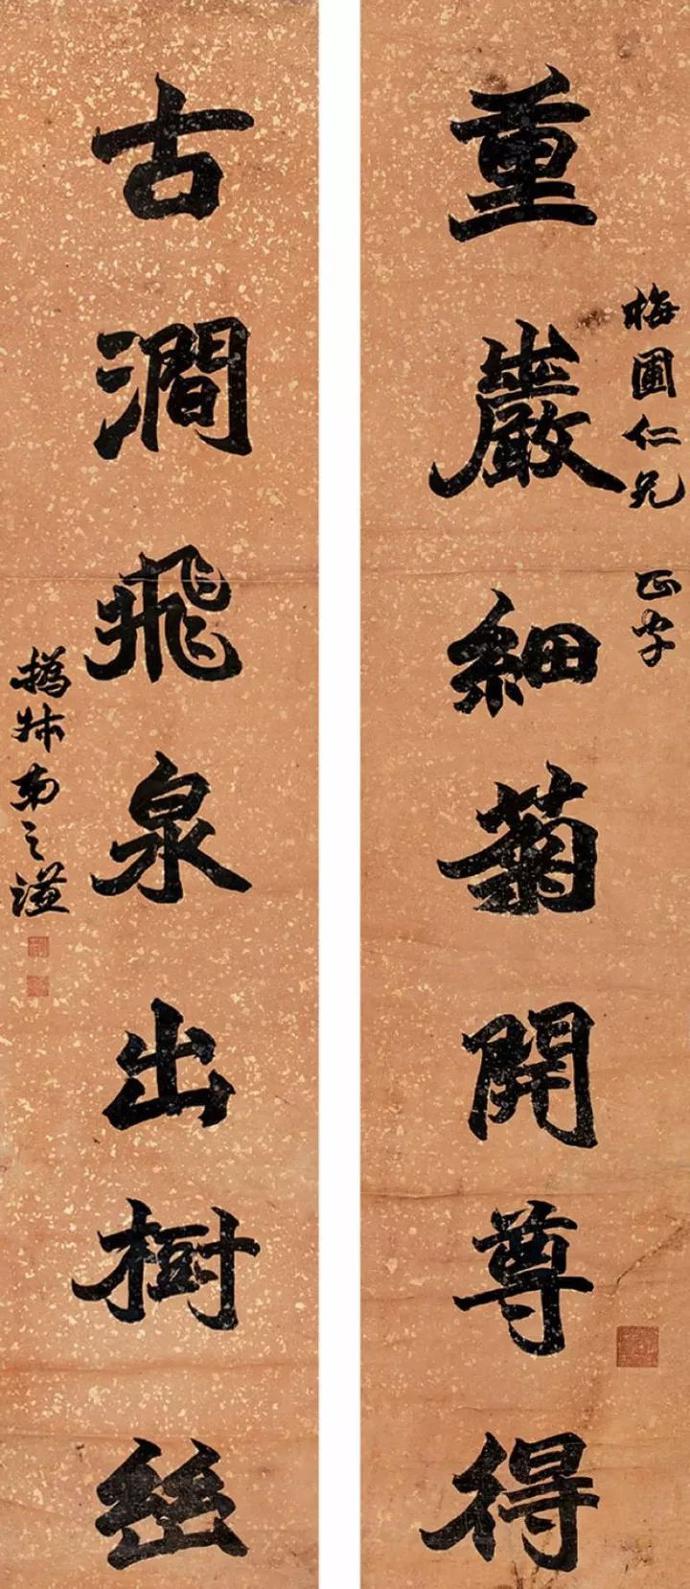 重巖細菊開尊得
梅圃仁兄 正字
古澗飛泉出樹幽
南之